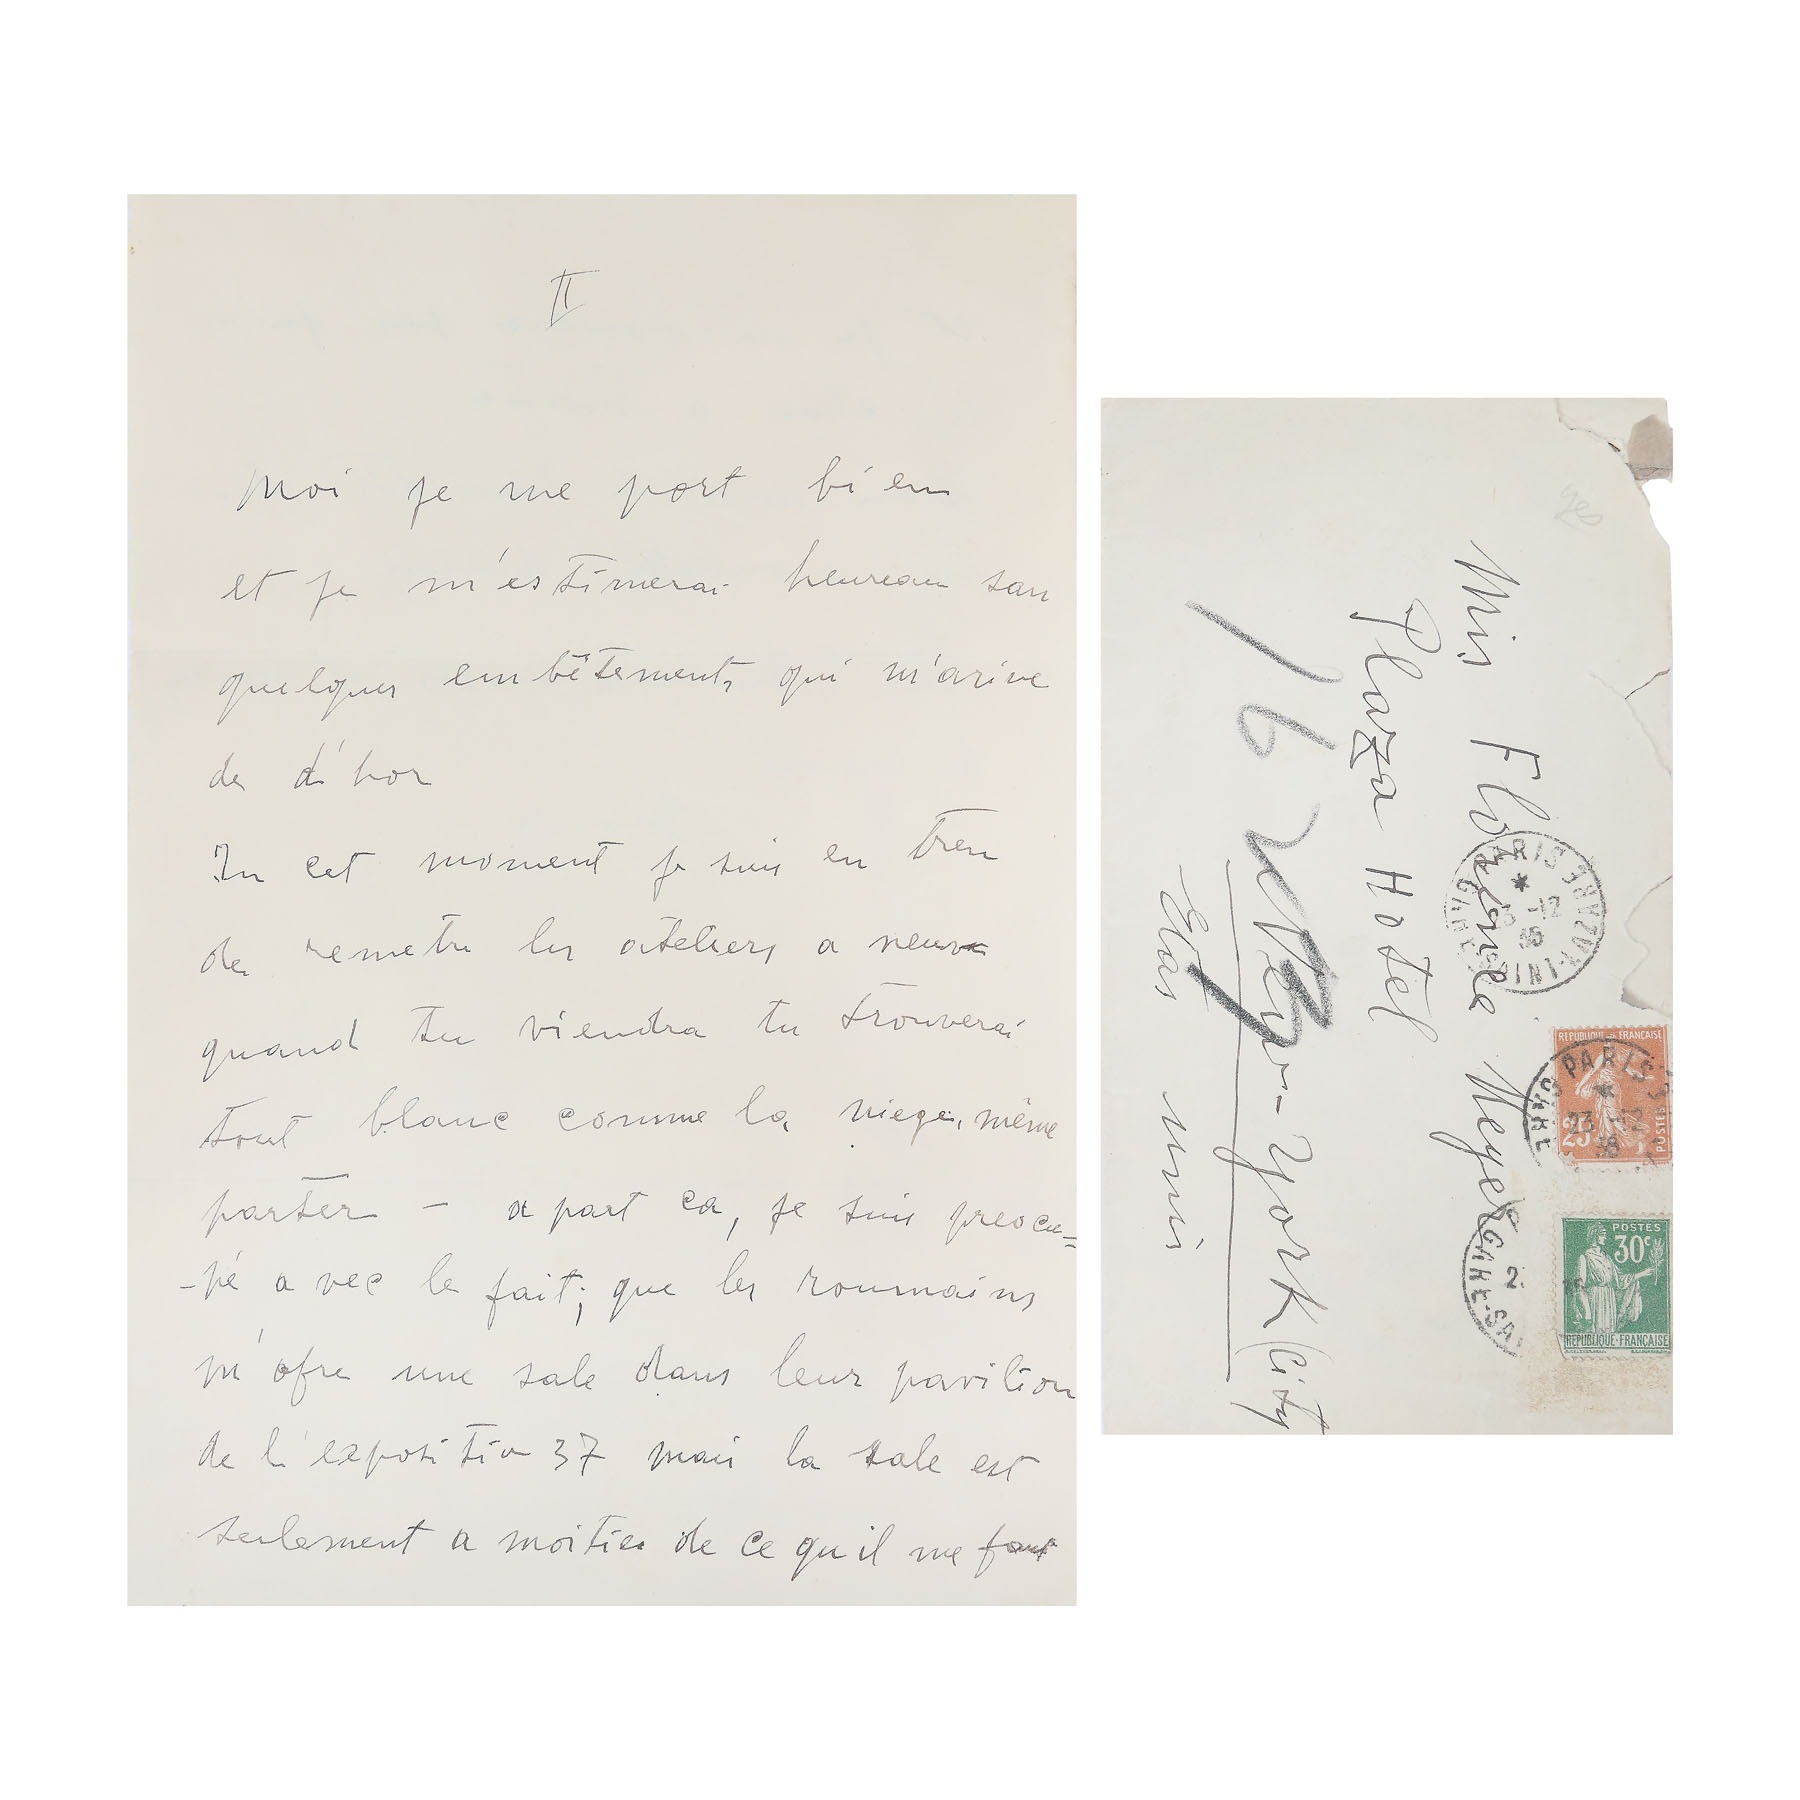 II
Moi je me port bien
et je m'estimerai heureau san
quelques embêtements qui m'arive
de d'hor
In cet moment je suis en tren
de remetre les ateliers a neuve
quand tu viendra tu trouverai
tout blanc comme la niege, même
parter – a part ca, je suis preocu=
-pé avec le fait; que les roumains
m'ofre une sale dans leur pavilion
de l'expositio 37 mais la sale est
seulement a moitie de ce qu il me faut
yes
Miss Florence Meyer
Plaza Hotel
New-York (City
Etas unis
16
PARIS GARE SAINT-LAZARE
23 -12
36
REPUBLIQUE FRANÇAISE
25c
POSTES
PARIS
23 -12
36
GARE-SAI
POSTES
30c
REPUBLIQUE-FRANÇAISE